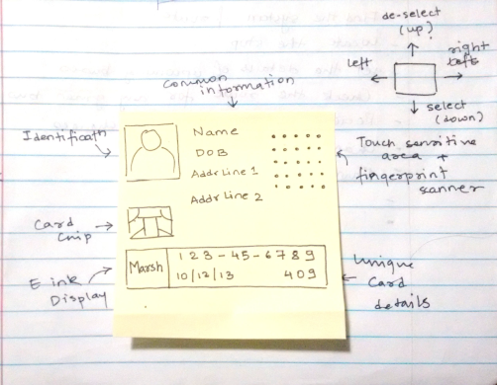 de-select
(up)
left
right
lefts
select
(down)
Common
information
Identificath
Name
DOB
Addr Line 1
Addr Line 2
Touch sensitive
area +
fingerprint
scanner
Card
Chip
E ink
Display
Marsh
123-45-6789
10/12/13 409
Unique
Card
details